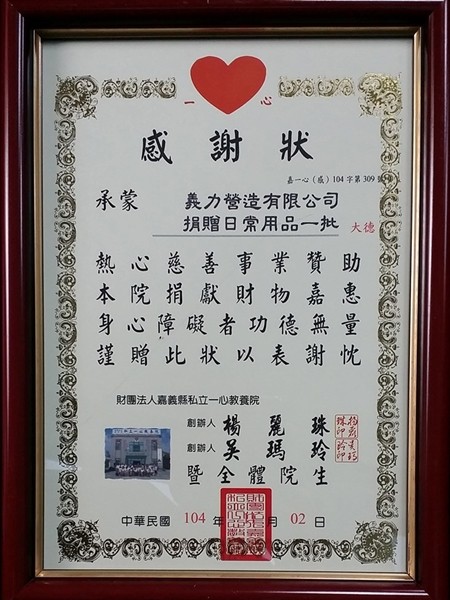 一心
感謝狀
嘉一心（感）104字第309號
承蒙 義力營造有限公司
捐贈日常用品一批 大德
熱心慈善事業贊助
本院捐獻財物嘉惠
身心障礙者功德無量
謹贈此狀以表謝忱
財團法人嘉義縣私立一心教養院
創辦人 楊麗珠
創辦人 吳瑪玲
暨全體院生
中華民國 104 年 月 02 日